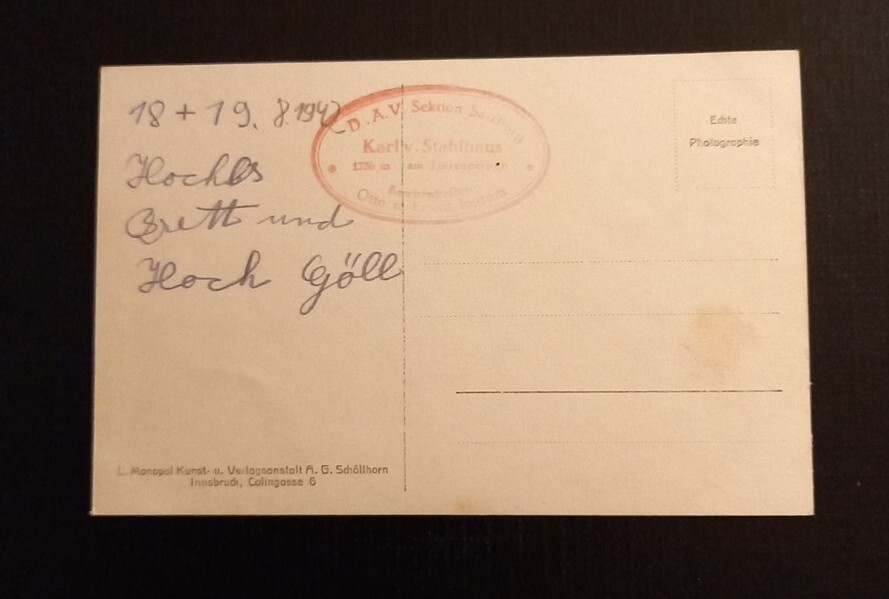 18 + 19. 8. 1942
Hohes
Brett und
Hoch Göll
D. A. V. Sektion Salzburg
Karl v. Stahlhaus
am
Otto
Echte
Photographie
L. Monopol Kunst- u. Verlagsanstalt A. G. Schöllhorn
Innsbruck, Colingasse 6